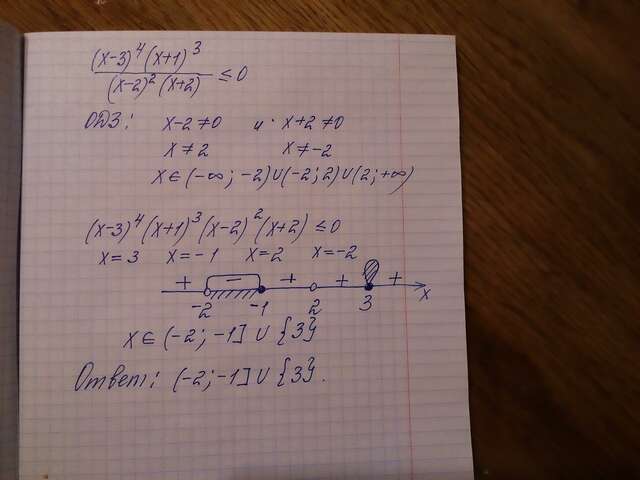 (x-3)⁴(x+1)³
(x-2)²(x+2) ≤ 0
ОДЗ: x-2≠0 и x+2≠0
x≠2 x≠-2
x∈(-∞; -2)∪(-2; 2)∪(2; +∞)
(x-3)⁴(x+1)³(x-2)²(x+2) ≤ 0
x=3 x=-1 x=2 x=-2
+ - + + +
-2 -1 2 3 x
x∈(-2; -1]∪{3}
Ответ: (-2; -1]∪{3}.